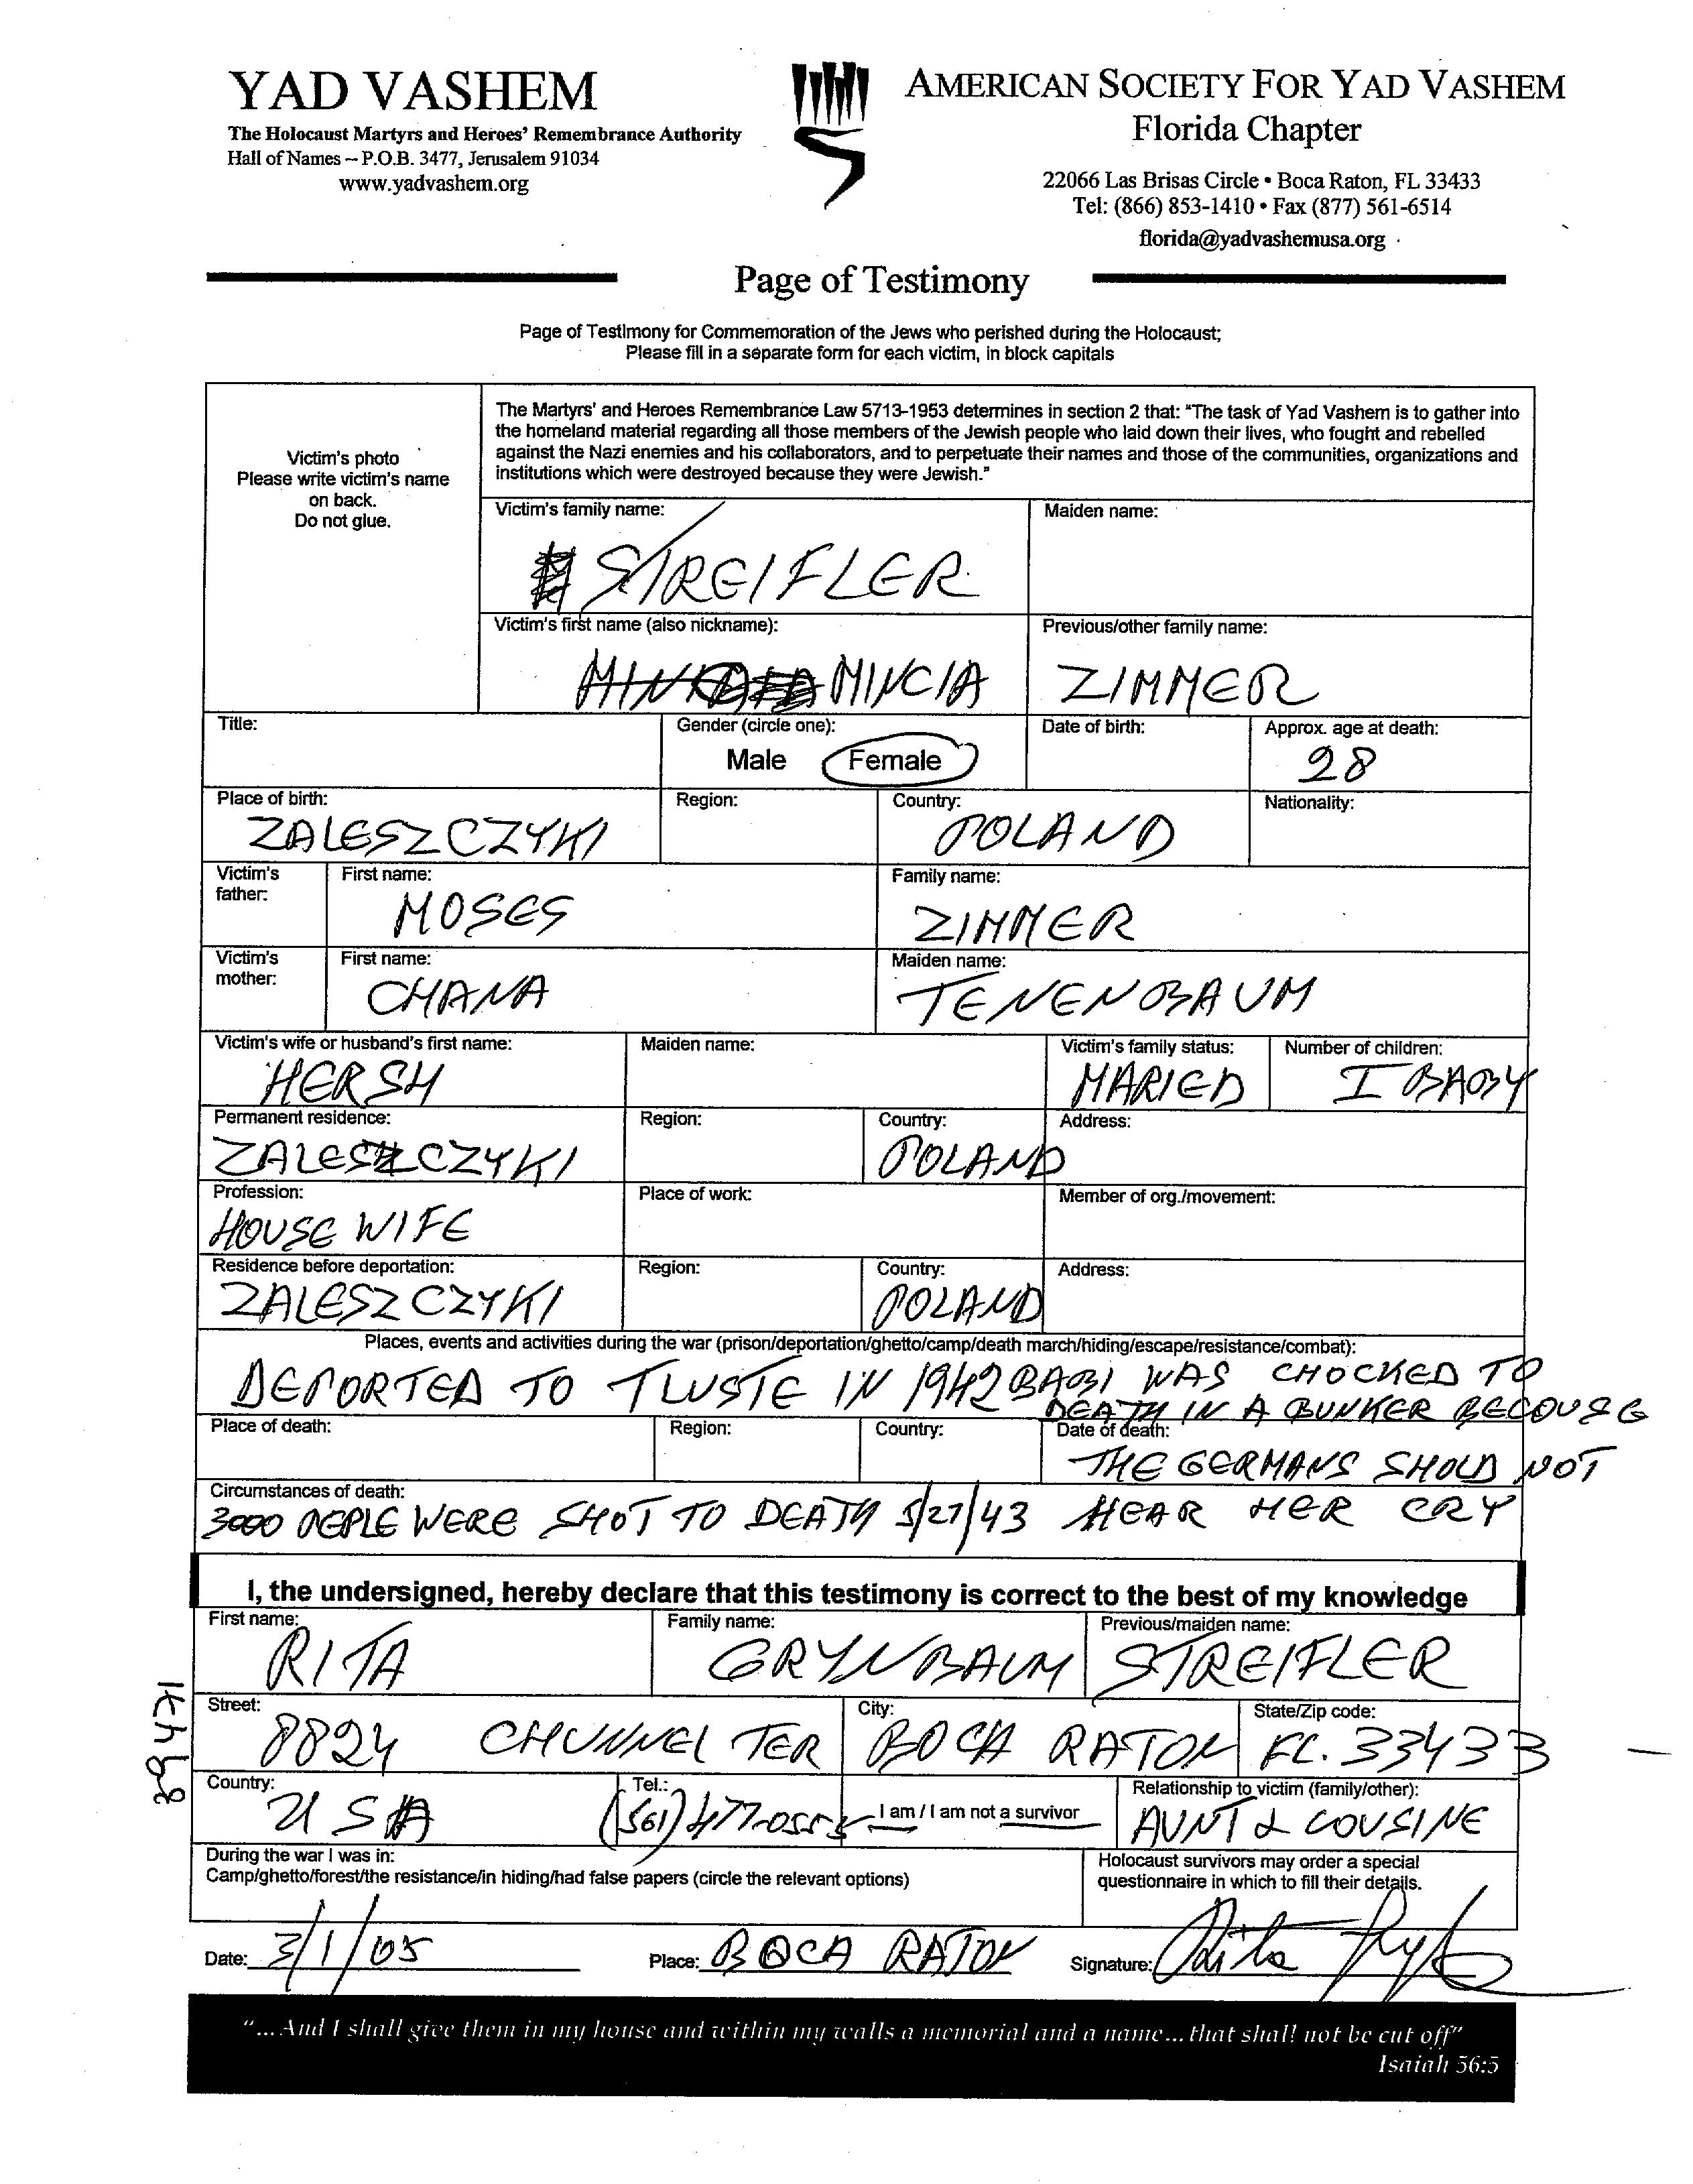 YAD VASHEM
The Holocaust Martyrs and Heroes' Remembrance Authority
Hall of Names – P.O.B. 3477, Jerusalem 91034
www.yadvashem.org
AMERICAN SOCIETY FOR YAD VASHEM
Florida Chapter
22066 Las Brisas Circle • Boca Raton, FL 33433
Tel: (866) 853-1410 • Fax (877) 561-6514
florida@yadvashemusa.org
Page of Testimony
Page of Testimony for Commemoration of the Jews who perished during the Holocaust;
Please fill in a separate form for each victim, in block capitals
Victim's photo
Please write victim's name
on back.
Do not glue.
The Martyrs' and Heroes Remembrance Law 5713-1953 determines in section 2 that: "The task of Yad Vashem is to gather into
the homeland material regarding all those members of the Jewish people who laid down their lives, who fought and rebelled
against the Nazi enemies and his collaborators, and to perpetuate their names and those of the communities, organizations and
institutions which were destroyed because they were Jewish."
Victim's family name: Maiden name:
STREIFLER
Victim's first name (also nickname): Previous/other family name:
MINCIA ZIMMER
Title: Gender (circle one): Date of birth: Approx. age at death:
Male Female 28
Place of birth: Region: Country: Nationality:
ZALESZCZYKI POLAND
Victim's father: First name: Family name:
MOSES ZIMMER
Victim's mother: First name: Maiden name:
CHANA TENENBAUM
Victim's wife or husband's first name: Maiden name: Victim's family status: Number of children:
HERSH MARIED I BABY
Permanent residence: Region: Country: Address:
ZALESZCZYKI POLAND
Profession: Place of work: Member of org./movement:
HOUSE WIFE
Residence before deportation: Region: Country: Address:
ZALESZCZYKI POLAND
Places, events and activities during the war (prison/deportation/ghetto/camp/death march/hiding/escape/resistance/combat):
DEPORTED TO TLUSTE IN 1942 BABI WAS CHOCKED TO
DEATH IN A BUNKER BECOUSE
Place of death: Region: Country: Date of death:
THE GERMANS SHOLD NOT
Circumstances of death:
3000 PEPLE WERE SHOT TO DEATH 5/27/43 HEAR HER CRY
I, the undersigned, hereby declare that this testimony is correct to the best of my knowledge
First name: Family name: Previous/maiden name:
RITA GRYNBAUM STREIFLER
Street: City: State/Zip code:
8824 CHUNNEL TER BOCA RATON FL. 33433
Country: Tel.: I am / I am not a survivor Relationship to victim (family/other):
USA (561) 477-0555 AUNT & COUSINE
During the war I was in:
Camp/ghetto/forest/the resistance/in hiding/had false papers (circle the relevant options)
Holocaust survivors may order a special
questionnaire in which to fill their details.
Date: 3/1/05 Place: BOCA RATON Signature: Rita
"...And I shall give them in my house and within my walls a memorial and a name... that shall not be cut off"
Isaiah 56:5